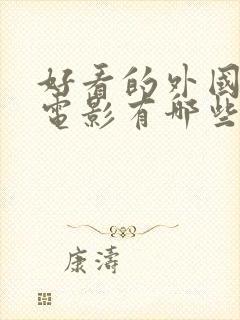 好看的外国
电影有哪些
康濤